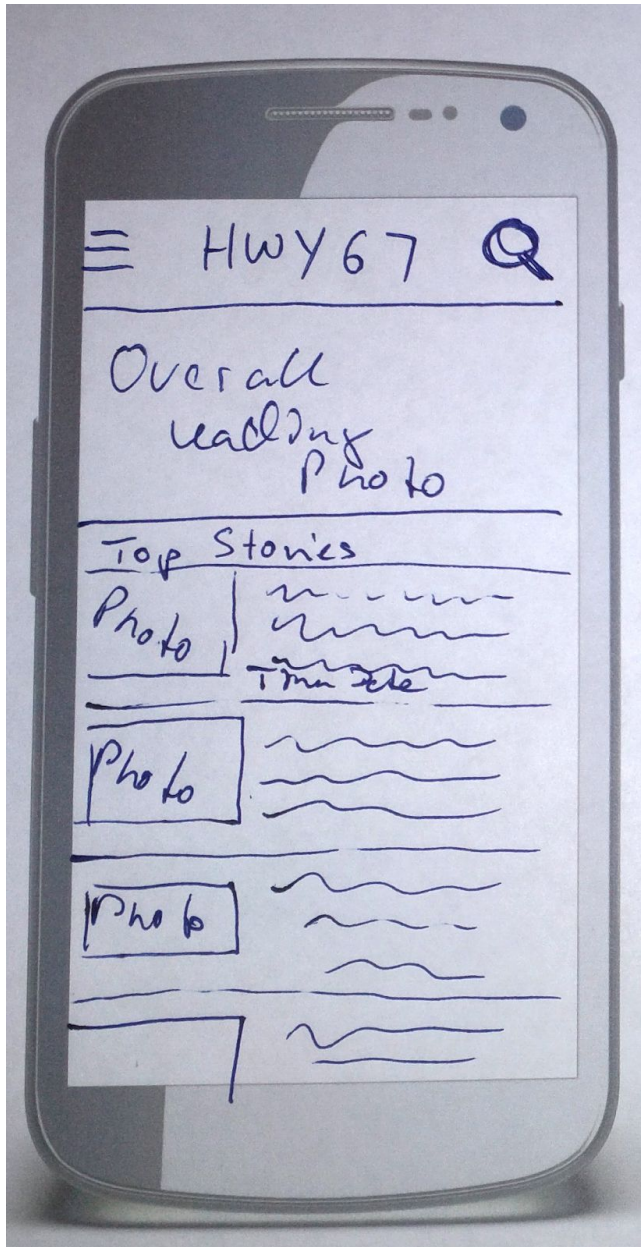 HWY67
Overall
leading
Photo
Top Stories
Photo
Time Date
Photo
Photo